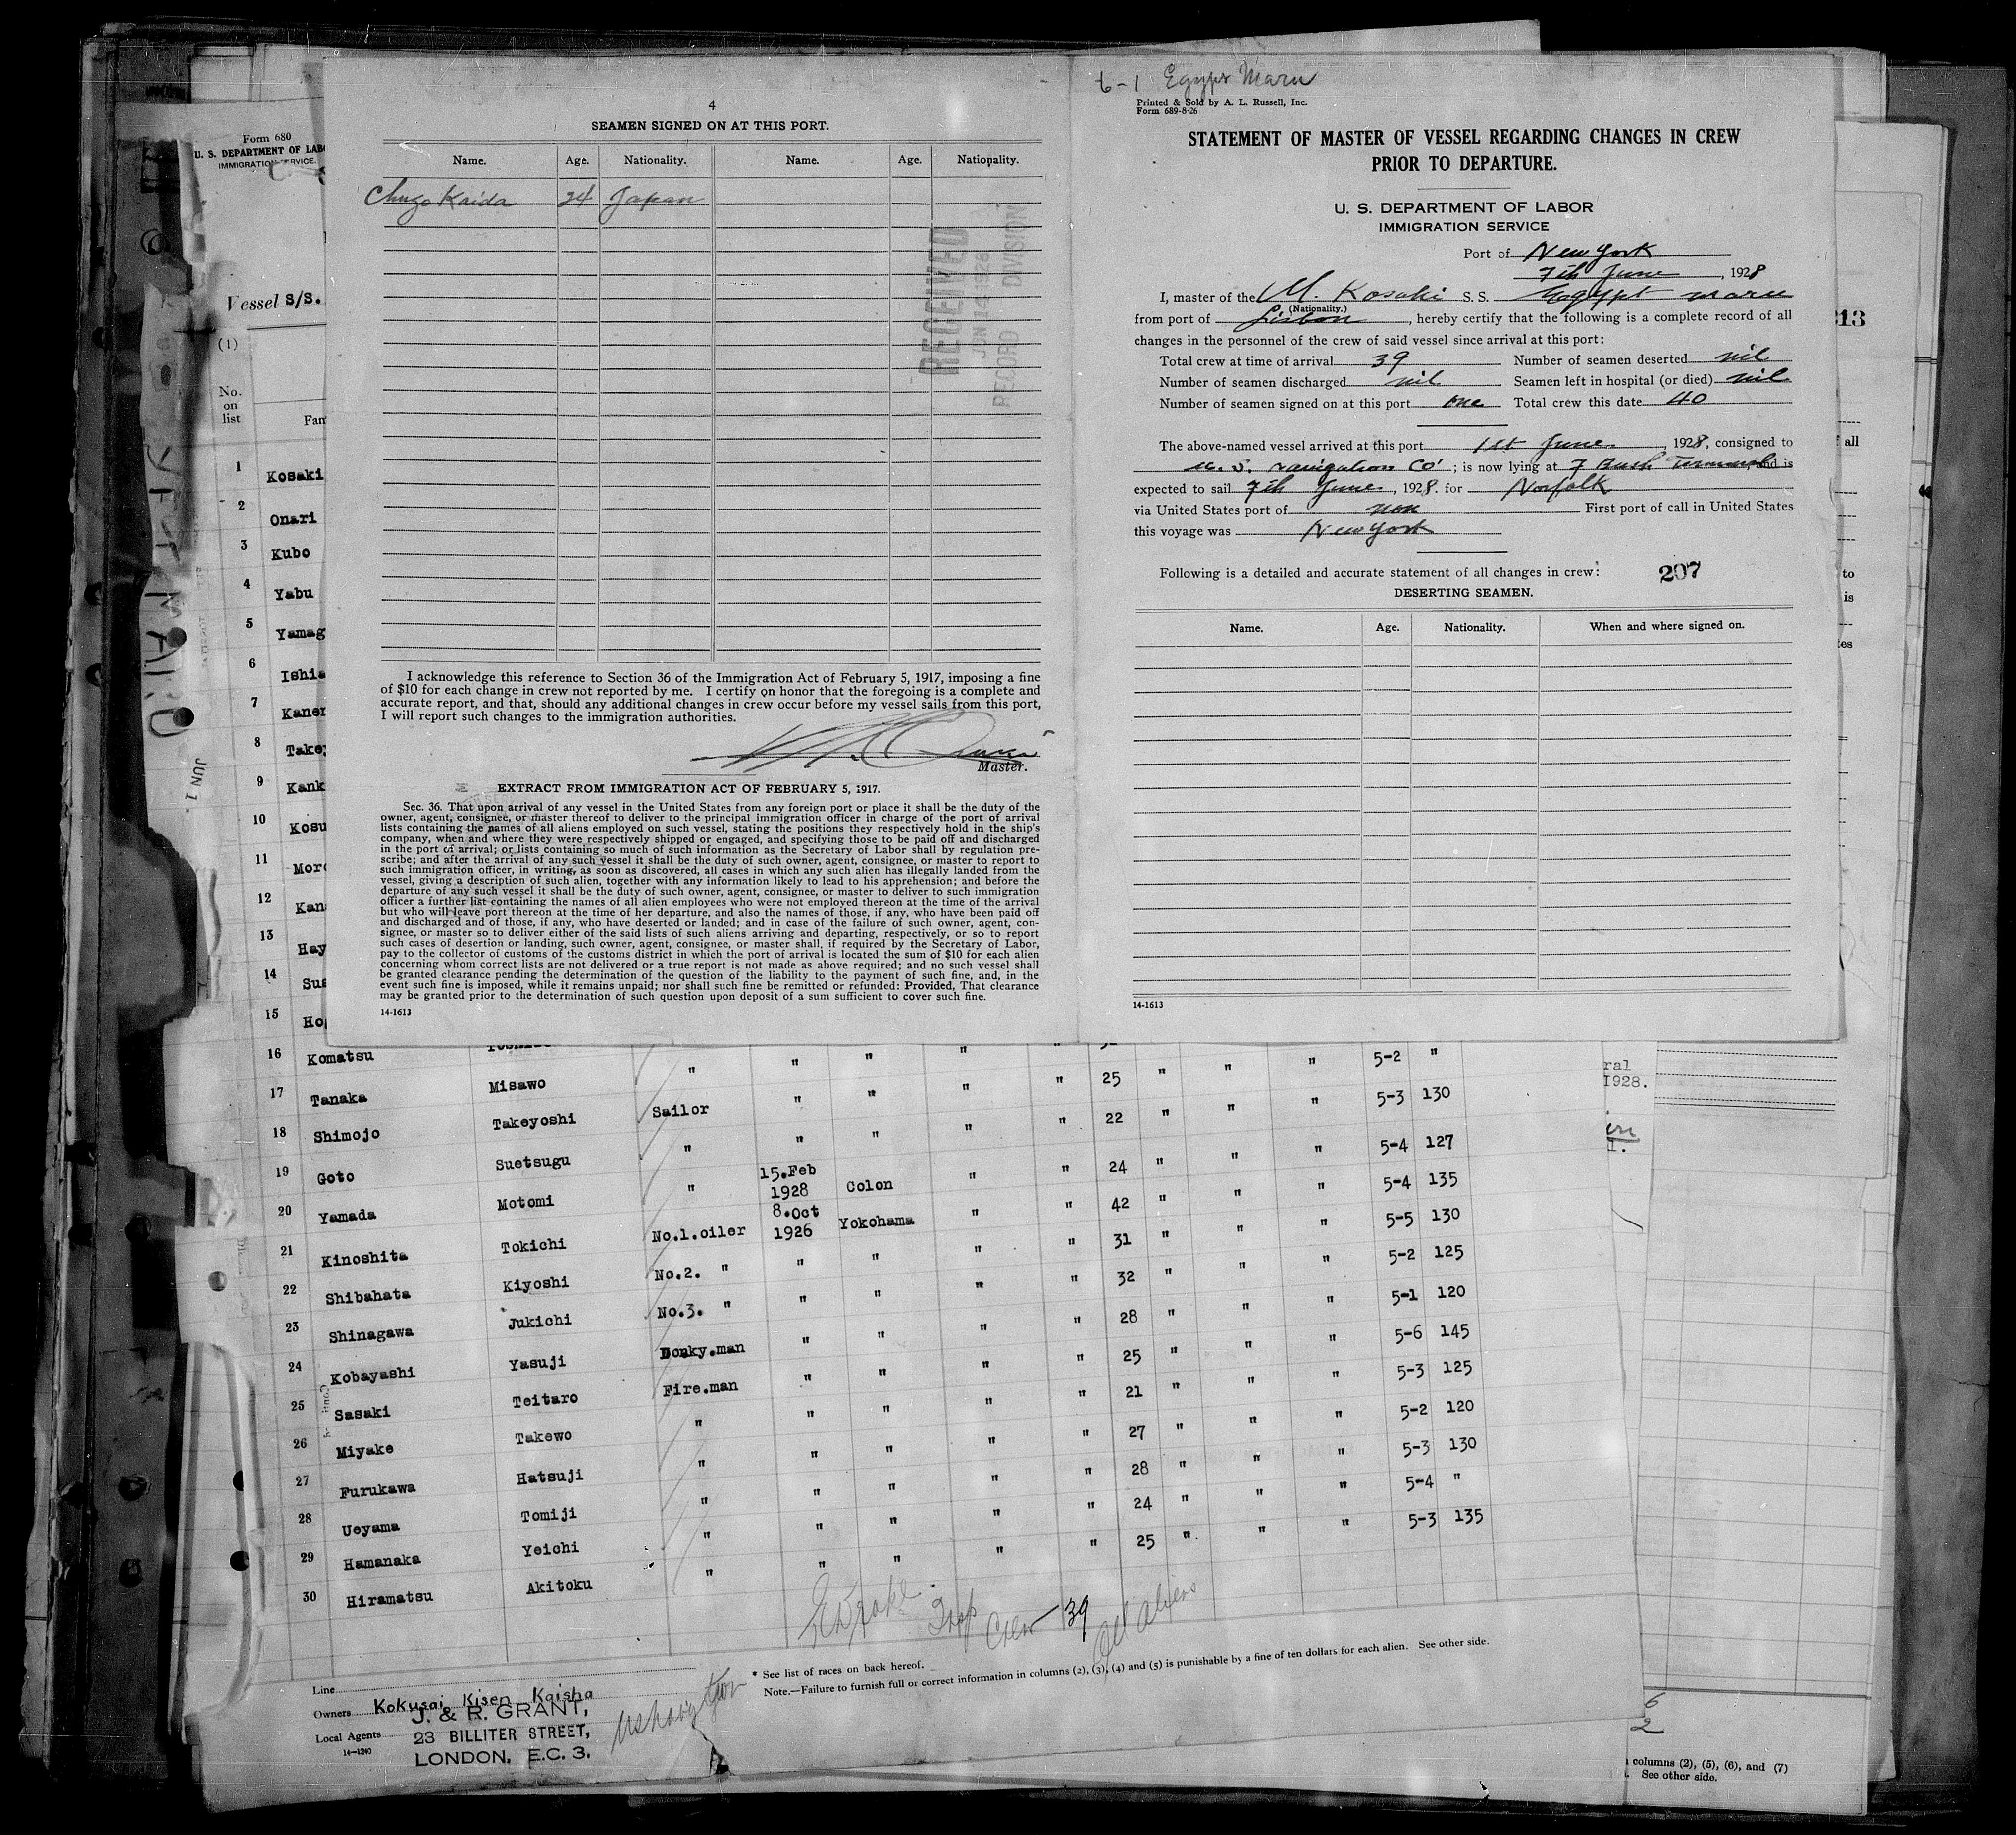 4
SEAMEN SIGNED ON AT THIS PORT.
Name. Age. Nationality. Name. Age. Nationality.
Chugo Kaida 24 Japan
RECEIVED
JUN 14 1928
RECORD DIVISION
I acknowledge this reference to Section 36 of the Immigration Act of February 5, 1917, imposing a fine
of $10 for each change in crew not reported by me. I certify on honor that the foregoing is a complete and
accurate report, and that, should any additional changes in crew occur before my vessel sails from this port,
I will report such changes to the immigration authorities.
Master.
EXTRACT FROM IMMIGRATION ACT OF FEBRUARY 5, 1917.
Sec. 36. That upon arrival of any vessel in the United States from any foreign port or place it shall be the duty of the
owner, agent, consignee, or master thereof to deliver to the principal immigration officer in charge of the port of arrival
lists containing the names of all aliens employed on such vessel, stating the positions they respectively hold in the ship's
company, when and where they were respectively shipped or engaged, and specifying those to be paid off and discharged
in the port of arrival; or lists containing so much of such information as the Secretary of Labor shall by regulation pre-
scribe; and after the arrival of any such vessel it shall be the duty of such owner, agent, consignee, or master to report to
such immigration officer, in writing, as soon as discovered, all cases in which any such alien has illegally landed from the
vessel, giving a description of such alien, together with any information likely to lead to his apprehension; and before the
departure of any such vessel it shall be the duty of such owner, agent, consignee, or master to deliver to such immigration
officer a further list containing the names of all alien employees who were not employed thereon at the time of the arrival
but who will leave port thereon at the time of her departure, and also the names of those, if any, who have been paid off
and discharged and of those, if any, who have deserted or landed; and in case of the failure of such owner, agent, con-
signee, or master so to deliver either of the said lists of such aliens arriving and departing, respectively, or so to report
such cases of desertion or landing, such owner, agent, consignee, or master shall, if required by the Secretary of Labor,
pay to the collector of customs of the customs district in which the port of arrival is located the sum of $10 for each alien
concerning whom correct lists are not delivered or a true report is not made as above required; and no such vessel shall
be granted clearance pending the determination of the question of the liability to the payment of such fine, and, in the
event such fine is imposed, while it remains unpaid; nor shall such fine be remitted or refunded: Provided, That clearance
may be granted prior to the determination of such question upon deposit of a sum sufficient to cover such fine.
14-1613
6-1 Egypt Maru
Printed & Sold by A. L. Russell, Inc.
Form 689-8-26
STATEMENT OF MASTER OF VESSEL REGARDING CHANGES IN CREW
PRIOR TO DEPARTURE.
U. S. DEPARTMENT OF LABOR
IMMIGRATION SERVICE
Port of New York
7th June, 1928
I, master of the M. Kosaki S. S. Egypt maru
(Nationality.)
from port of Lisbon, hereby certify that the following is a complete record of all
changes in the personnel of the crew of said vessel since arrival at this port:
Total crew at time of arrival 39 Number of seamen deserted nil
Number of seamen discharged nil Seamen left in hospital (or died) nil
Number of seamen signed on at this port one Total crew this date 40
The above-named vessel arrived at this port 1st June, 1928, consigned to
U. S. Navigation Co'; is now lying at 7 Bush Terminal and is
expected to sail 7th June, 1928. for Norfolk
via United States port of non First port of call in United States
this voyage was New York
Following is a detailed and accurate statement of all changes in crew:
207
DESERTING SEAMEN.
Name. Age. Nationality. When and where signed on.
14-1613
Form 680
U. S. DEPARTMENT OF LAB
IMMIGRATION SERVICE.
Vessel S/S.
(1)
No. on list
Fam
EGYPT MARU
JUN 1
1 Kosaki
2 Onari
3 Kubo
4 Yabu
5 Yamag
6 Ishia
7 Kaner
8 Take
9 Kank
10 Kosu
11 Moro
12 Kan
13 Hay
14 Sus
15 Hog
16 Komatsu " " " " " 5-2 "
17 Tanaka Misawo " " " " " 25 " " " 5-3 130
18 Shimojo Takeyoshi Sailor " " " " 22 " " " 5-4 127
19 Goto Suetsugu " 15.Feb 1928 Colon " " 24 " " " 5-4 135
20 Yamada Motomi " 8.Oct 1926 Yokohama " " 42 " " " 5-5 130
21 Kinoshita Tokichi No.1.oiler " " " " 31 " " " 5-2 125
22 Shibahata Kiyoshi No.2. " " " " " 32 " " " 5-1 120
23 Shinagawa Jukichi No.3. " " " " " 28 " " " 5-6 145
24 Kobayashi Yasuji Donky.man " " " " 25 " " " 5-3 125
25 Sasaki Teitaro Fire.man " " " " 21 " " " 5-2 120
26 Miyake Takewo " " " " " 27 " " " 5-3 130
27 Furukawa Hatsuji " " " " " 28 " " " 5-4 "
28 Ueyama Tomiji " " " " " 24 " " " 5-3 135
29 Hamanaka Yeichi " " " " " 25 " " "
30 Hiramatsu Akitoku "
Crew 39 All Aliens
* See list of races on back hereof.
Note.—Failure to furnish full or correct information in columns (2), (3), (4) and (5) is punishable by a fine of ten dollars for each alien. See other side.
Line
Owners Kokusai Kisen Kaisha
Local Agents
J. & R. GRANT,
23 BILLITER STREET,
LONDON, E.C. 3.
14-1240
US Navigation
313
all
to
is
tes
ral
1928.
columns (2), (5), (6), and (7)
See other side.